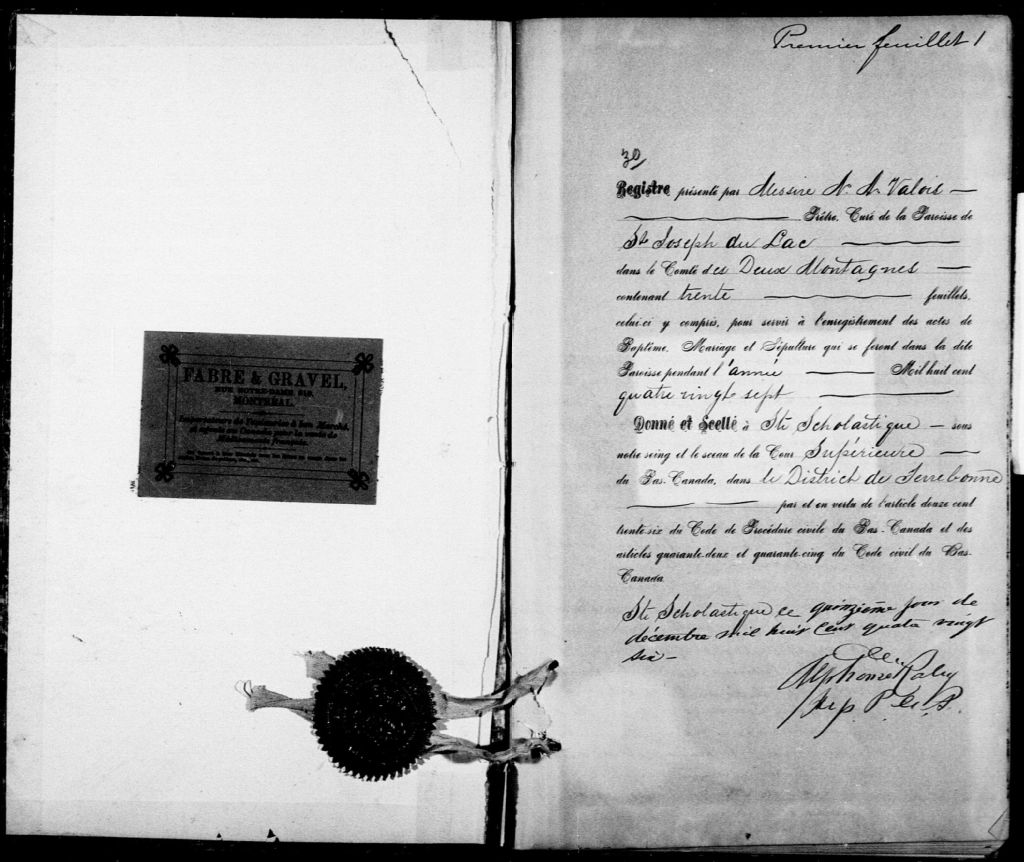 FABRE & GRAVEL,
RUE NOTRE-DAME 219,
MONTREAL.
Importateurs de Papeteries à bon Marché,
Premier feuillet 1
30/
Registre présenté par Messire N. A. Valois
Prêtre, Curé de la Paroisse de
St Joseph du Lac
dans le Comté des Deux Montagnes
contenant trente feuillets,
celui-ci y compris, pour servir à l'enregistrement des actes de
Baptême, Mariage et Sépulture qui se feront dans la dite
Paroisse pendant l'année Mil huit cent
quatre vingt sept
Donné et Scellé à Ste Scholastique sous
notre seing et le sceau de la Cour Supérieure
du Bas-Canada, dans le District de Terrebonne
par et en vertu de l'article douze cent
trente-six du Code de Procédure civile du Bas-Canada et des
articles quarante-deux et quarante-cinq du Code civil du Bas-
Canada
Ste Scholastique ce quinzième jour de
décembre mil huit cent quatre vingt
six
Alphonse
Dep. P.